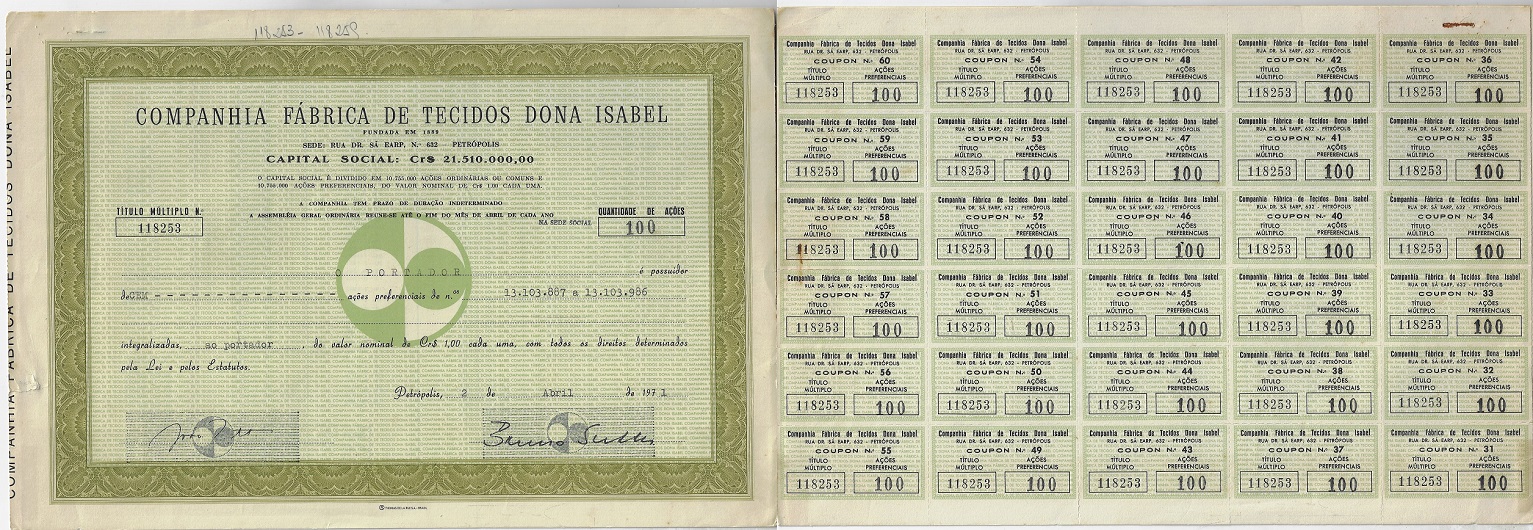 118253 - 118259
COMPANHIA FÁBRICA DE TECIDOS DONA ISABEL
COMPANHIA FÁBRICA DE TECIDOS DONA ISABEL
FUNDADA EM 1889
SEDE: RUA DR. SÁ EARP, N.º 632 PETRÓPOLIS
CAPITAL SOCIAL: Cr$ 21.510.000,00
O CAPITAL SOCIAL É DIVIDIDO EM 10.755.000 AÇÕES ORDINÁRIAS OU COMUNS E
10.755.000 AÇÕES PREFERENCIAIS, DO VALOR NOMINAL DE Cr$ 1,00 CADA UMA.
A COMPANHIA TEM PRAZO DE DURAÇÃO INDETERMINADO
A ASSEMBLÉIA GERAL ORDINÁRIA REUNE-SE ATÉ O FIM DO MÊS DE ABRIL DE CADA ANO
NA SEDE SOCIAL
TÍTULO MÚLTIPLO N.º
118253
QUANTIDADE DE AÇÕES
100
O PORTADOR é possuidor
de CEM ações preferenciais de n.os 13.103.887 a 13.103.986
integralizadas, ao portador, do valor nominal de Cr$ 1,00 cada uma, com todos os direitos determinados
pela Lei e pelos Estatutos.
Petrópolis, 2 de Abril de 1971
Companhia Fábrica de Tecidos Dona Isabel Companhia Fábrica de Tecidos Dona Isabel Companhia Fábrica de Tecidos Dona Isabel Companhia Fábrica de Tecidos Dona Isabel Companhia Fábrica de Tecidos Dona Isabel
RUA DR. SÁ EARP, 632 - PETRÓPOLIS RUA DR. SÁ EARP, 632 - PETRÓPOLIS RUA DR. SÁ EARP, 632 - PETRÓPOLIS RUA DR. SÁ EARP, 632 - PETRÓPOLIS RUA DR. SÁ EARP, 632 - PETRÓPOLIS
COUPON N.º 60 COUPON N.º 54 COUPON N.º 48 COUPON N.º 42 COUPON N.º 36
TÍTULO AÇÕES TÍTULO AÇÕES TÍTULO AÇÕES TÍTULO AÇÕES TÍTULO AÇÕES
MÚLTIPLO PREFERENCIAIS MÚLTIPLO PREFERENCIAIS MÚLTIPLO PREFERENCIAIS MÚLTIPLO PREFERENCIAIS MÚLTIPLO PREFERENCIAIS
118253 100 118253 100 118253 100 118253 100 118253 100
Companhia Fábrica de Tecidos Dona Isabel Companhia Fábrica de Tecidos Dona Isabel Companhia Fábrica de Tecidos Dona Isabel Companhia Fábrica de Tecidos Dona Isabel Companhia Fábrica de Tecidos Dona Isabel
RUA DR. SÁ EARP, 632 - PETRÓPOLIS RUA DR. SÁ EARP, 632 - PETRÓPOLIS RUA DR. SÁ EARP, 632 - PETRÓPOLIS RUA DR. SÁ EARP, 632 - PETRÓPOLIS RUA DR. SÁ EARP, 632 - PETRÓPOLIS
COUPON N.º 59 COUPON N.º 53 COUPON N.º 47 COUPON N.º 41 COUPON N.º 35
TÍTULO AÇÕES TÍTULO AÇÕES TÍTULO AÇÕES TÍTULO AÇÕES TÍTULO AÇÕES
MÚLTIPLO PREFERENCIAIS MÚLTIPLO PREFERENCIAIS MÚLTIPLO PREFERENCIAIS MÚLTIPLO PREFERENCIAIS MÚLTIPLO PREFERENCIAIS
118253 100 118253 100 118253 100 118253 100 118253 100
Companhia Fábrica de Tecidos Dona Isabel Companhia Fábrica de Tecidos Dona Isabel Companhia Fábrica de Tecidos Dona Isabel Companhia Fábrica de Tecidos Dona Isabel Companhia Fábrica de Tecidos Dona Isabel
RUA DR. SÁ EARP, 632 - PETRÓPOLIS RUA DR. SÁ EARP, 632 - PETRÓPOLIS RUA DR. SÁ EARP, 632 - PETRÓPOLIS RUA DR. SÁ EARP, 632 - PETRÓPOLIS RUA DR. SÁ EARP, 632 - PETRÓPOLIS
COUPON N.º 58 COUPON N.º 52 COUPON N.º 46 COUPON N.º 40 COUPON N.º 34
TÍTULO AÇÕES TÍTULO AÇÕES TÍTULO AÇÕES TÍTULO AÇÕES TÍTULO AÇÕES
MÚLTIPLO PREFERENCIAIS MÚLTIPLO PREFERENCIAIS MÚLTIPLO PREFERENCIAIS MÚLTIPLO PREFERENCIAIS MÚLTIPLO PREFERENCIAIS
118253 100 118253 100 118253 100 118253 100 118253 100
Companhia Fábrica de Tecidos Dona Isabel Companhia Fábrica de Tecidos Dona Isabel Companhia Fábrica de Tecidos Dona Isabel Companhia Fábrica de Tecidos Dona Isabel Companhia Fábrica de Tecidos Dona Isabel
RUA DR. SÁ EARP, 632 - PETRÓPOLIS RUA DR. SÁ EARP, 632 - PETRÓPOLIS RUA DR. SÁ EARP, 632 - PETRÓPOLIS RUA DR. SÁ EARP, 632 - PETRÓPOLIS RUA DR. SÁ EARP, 632 - PETRÓPOLIS
COUPON N.º 57 COUPON N.º 51 COUPON N.º 45 COUPON N.º 39 COUPON N.º 33
TÍTULO AÇÕES TÍTULO AÇÕES TÍTULO AÇÕES TÍTULO AÇÕES TÍTULO AÇÕES
MÚLTIPLO PREFERENCIAIS MÚLTIPLO PREFERENCIAIS MÚLTIPLO PREFERENCIAIS MÚLTIPLO PREFERENCIAIS MÚLTIPLO PREFERENCIAIS
118253 100 118253 100 118253 100 118253 100 118253 100
Companhia Fábrica de Tecidos Dona Isabel Companhia Fábrica de Tecidos Dona Isabel Companhia Fábrica de Tecidos Dona Isabel Companhia Fábrica de Tecidos Dona Isabel Companhia Fábrica de Tecidos Dona Isabel
RUA DR. SÁ EARP, 632 - PETRÓPOLIS RUA DR. SÁ EARP, 632 - PETRÓPOLIS RUA DR. SÁ EARP, 632 - PETRÓPOLIS RUA DR. SÁ EARP, 632 - PETRÓPOLIS RUA DR. SÁ EARP, 632 - PETRÓPOLIS
COUPON N.º 56 COUPON N.º 50 COUPON N.º 44 COUPON N.º 38 COUPON N.º 32
TÍTULO AÇÕES TÍTULO AÇÕES TÍTULO AÇÕES TÍTULO AÇÕES TÍTULO AÇÕES
MÚLTIPLO PREFERENCIAIS MÚLTIPLO PREFERENCIAIS MÚLTIPLO PREFERENCIAIS MÚLTIPLO PREFERENCIAIS MÚLTIPLO PREFERENCIAIS
118253 100 118253 100 118253 100 118253 100 118253 100
Companhia Fábrica de Tecidos Dona Isabel Companhia Fábrica de Tecidos Dona Isabel Companhia Fábrica de Tecidos Dona Isabel Companhia Fábrica de Tecidos Dona Isabel Companhia Fábrica de Tecidos Dona Isabel
RUA DR. SÁ EARP, 632 - PETRÓPOLIS RUA DR. SÁ EARP, 632 - PETRÓPOLIS RUA DR. SÁ EARP, 632 - PETRÓPOLIS RUA DR. SÁ EARP, 632 - PETRÓPOLIS RUA DR. SÁ EARP, 632 - PETRÓPOLIS
COUPON N.º 55 COUPON N.º 49 COUPON N.º 43 COUPON N.º 37 COUPON N.º 31
TÍTULO AÇÕES TÍTULO AÇÕES TÍTULO AÇÕES TÍTULO AÇÕES TÍTULO AÇÕES
MÚLTIPLO PREFERENCIAIS MÚLTIPLO PREFERENCIAIS MÚLTIPLO PREFERENCIAIS MÚLTIPLO PREFERENCIAIS MÚLTIPLO PREFERENCIAIS
118253 100 118253 100 118253 100 118253 100 118253 100